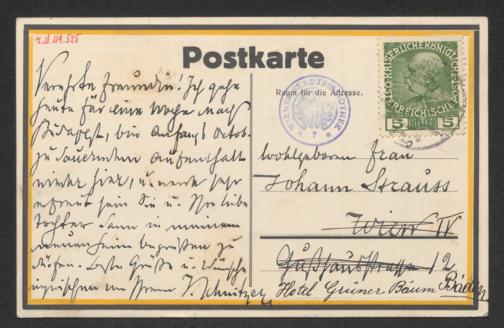 J.N. 119.525
Postkarte
Verehrte Freundin! Ich gehe
heute für eine Woche nach
Budapest, bin Anfangs Octob.
zu dauerndem Aufenthalt
wieder hier, u. werde sehr
erfreut sein Sie u. Ihre liebe
Tochter dann in meinem
neuen Heim begrüßen zu
dürfen. Beste Grüße u. Wünsche
inzwischen von Ihrem J. Schnitzer
Raum für die Adresse.
WIENER STADTBIBLIOTHEK
5 HELLER 5
Wohlgeboren Frau
Johann Strauss
Wien IV
Gußhausstrasse 12
Hotel Grüner Baum Baden